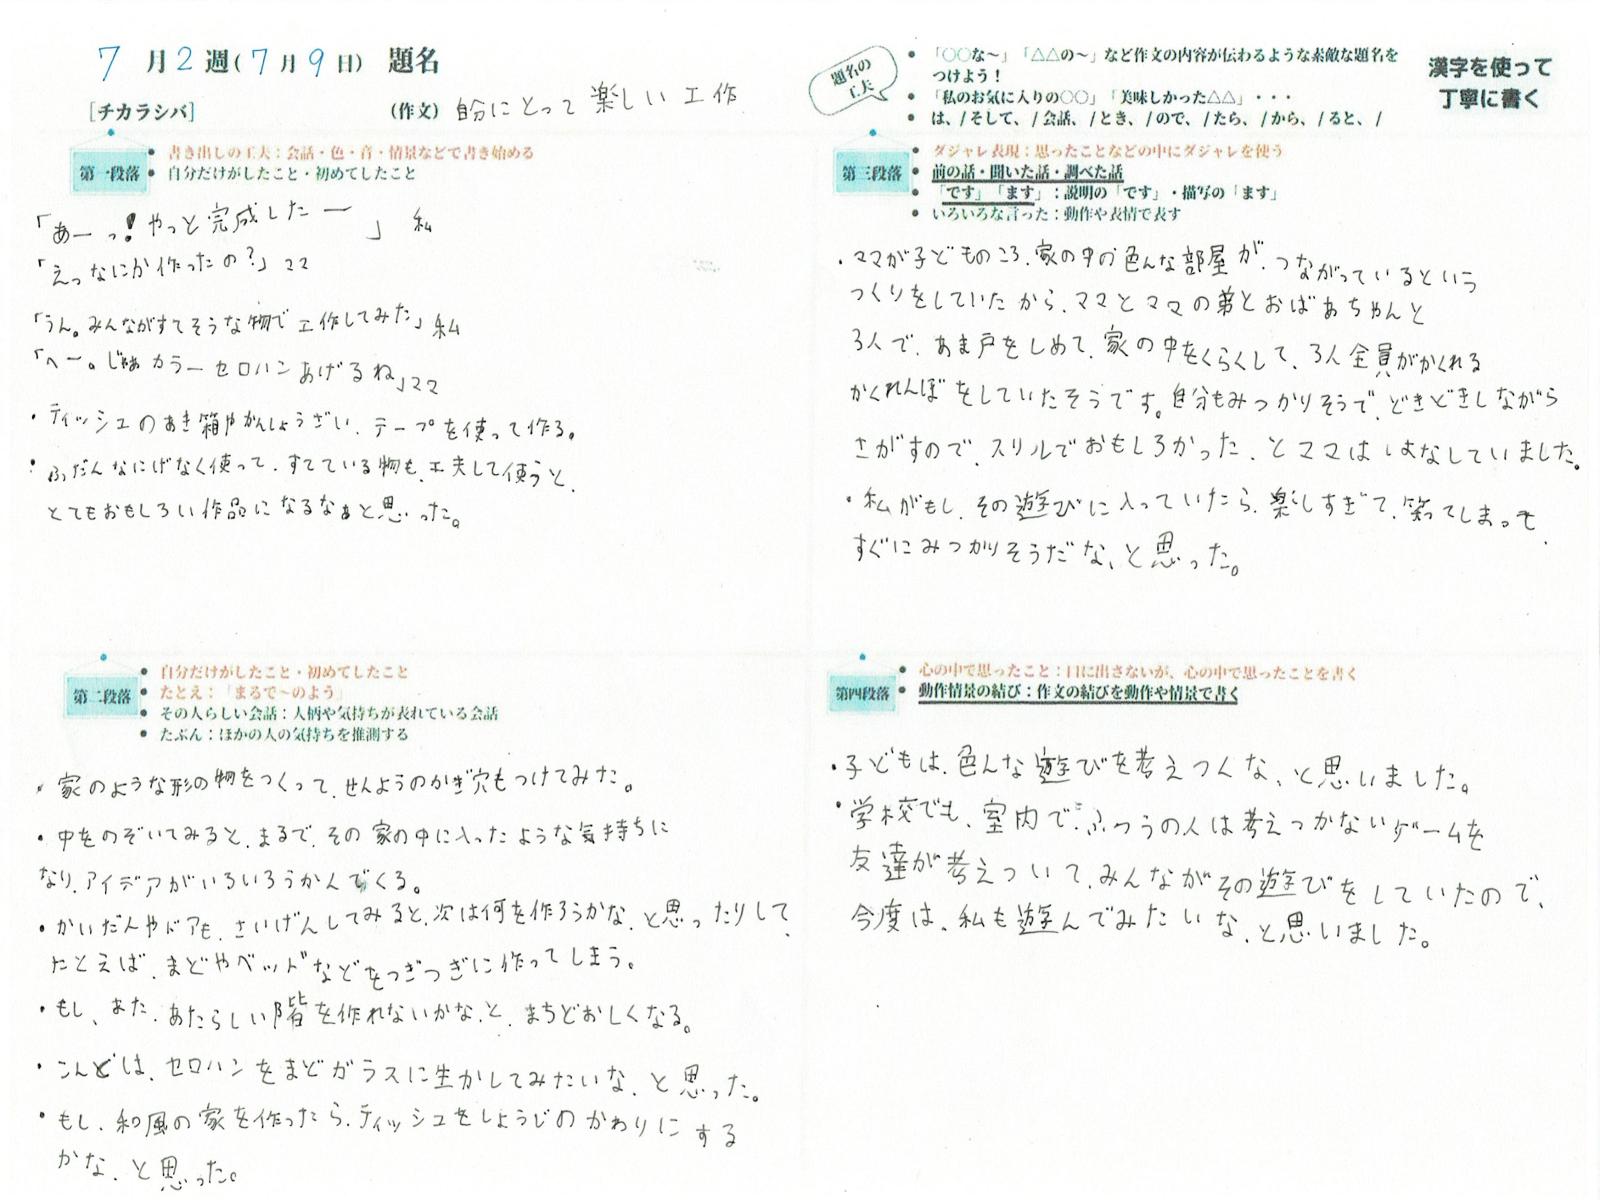 7月2週(7月9日) 題名
[チカラシバ]
(作文) 自分にとって楽しい工作
題名の工夫
・「○○な～」「△△の～」など作文の内容が伝わるような素敵な題名をつけよう！
・「私のお気に入りの○○」「美味しかった△△」・・・
・は、/そして、/会話、/とき、/ので、/たら、/から、/ると、/
漢字を使って
丁寧に書く
第一段落
・書き出しの工夫：会話・色・音・情景などで書き始める
・自分だけがしたこと・初めてしたこと
「あーっ!やっと完成したー」 私
「えっなにか作ったの?」ママ
「うん。みんながすてそうな物で工作してみた」私
「へー。じゃあカラーセロハンあげるね」ママ
・ティッシュのあき箱やかんしょうざい、テープを使って作る。
・ふだんなにげなく使って、すてている物も、工夫して使うと、
とてもおもしろい作品になるなぁと思った。
第二段落
・自分だけがしたこと・初めてしたこと
・たとえ：「まるで～のよう」
・その人らしい会話：人柄や気持ちが表れている会話
・たぶん：ほかの人の気持ちを推測する
・家のような形の物をつくって、せんようのかぎ穴もつけてみた。
・中をのぞいてみると、まるで、その家の中に入ったような気持ちに
なり、アイデアがいろいろうかんでくる。
・かいだんやドアも、さいげんしてみると、次は何を作ろうかな、と思ったりして、
たとえば、まどやベッドなどをつぎつぎに作ってしまう。
・もし、また、あたらしい階を作れないかな、と、まちどおしくなる。
・こんどは、セロハンをまどガラスに生かしてみたいな、と思った。
・もし、和風の家を作ったら、ティッシュをしょうじのかわりにする
かな、と思った。
第三段落
・ダジャレ表現：思ったことなどの中にダジャレを使う
・前の話・聞いた話・調べた話
・「です」「ます」：説明の「です」・描写の「ます」
・いろいろな言った：動作や表情で表す
・ママが子どものころ、家の中の色んな部屋が、つながっているという
つくりをしていたから、ママとママの弟とおばあちゃんと
3人で、あま戸をしめて、家の中をくらくして、3人全員がかくれる
かくれんぼをしていたそうです。自分もみつかりそうで、どきどきしながら
さがすので、スリルでおもしろかった、とママははなしていました。
・私がもし、その遊びに入っていたら、楽しすぎて、笑ってしまって、
すぐにみつかりそうだな、と思った。
第四段落
・心の中で思ったこと：口に出さないが、心の中で思ったことを書く
・動作情景の結び：作文の結びを動作や情景で書く
・子どもは、色んな遊びを考えつくな、と思いました。
・学校でも、室内で、ふつうの人は考えつかないゲームを
友達が考えついて、みんながその遊びをしていたので、
今度は、私も遊んでみたいな、と思いました。